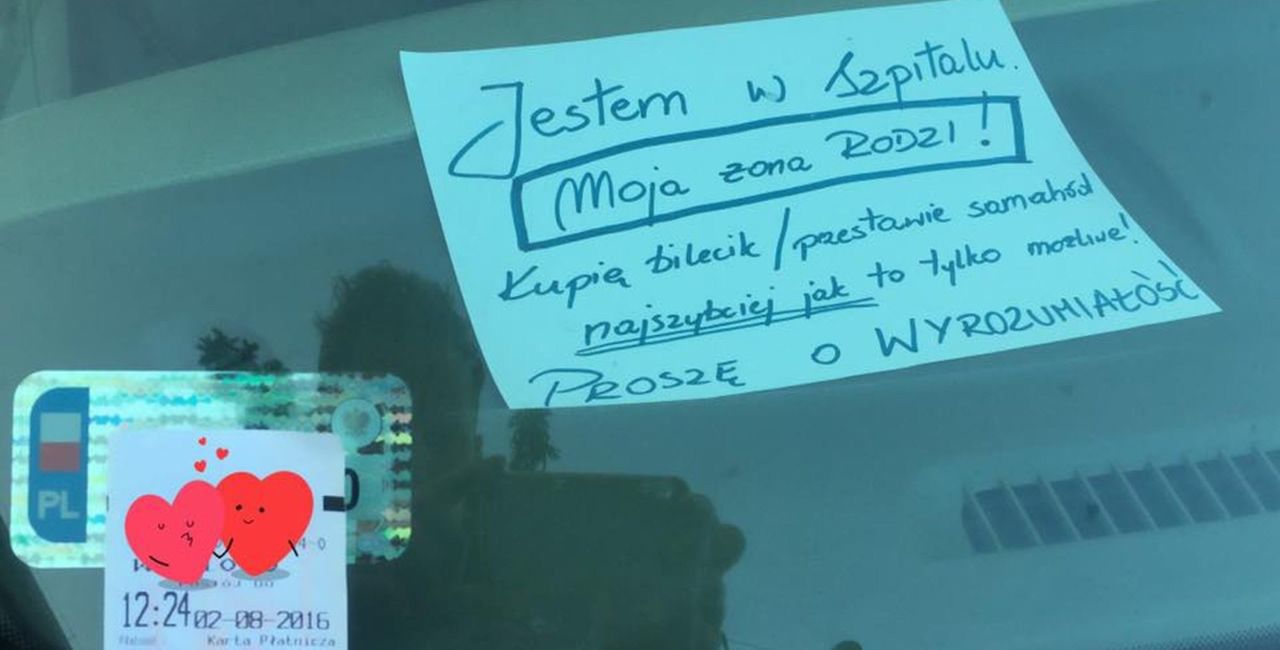 Jestem w Szpitalu.
Moja zona RODZI!
Kupię bilecik / przestawię samahód
najszybciej jak to tylko możliwe!
PROSZĘ o WYROZUMIAŁOŚĆ!
PL
12:24 02-08-2016
Karta Płatnicza